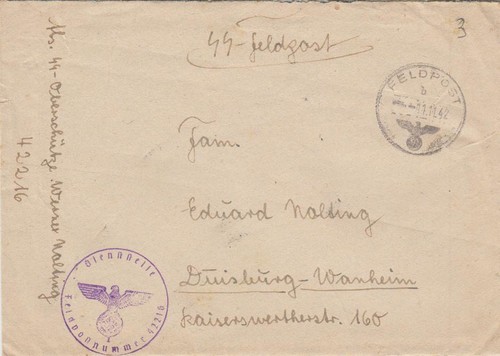 SS-Feldpost
3
FELDPOST
b
11.42
Abs. SS-Oberschütze Werner Nolting
42216
Fam.
Eduard Nolting
Duisburg-Wanheim
Kaiserswertherstr. 160
Dienststelle
Feldpostnummer 42216